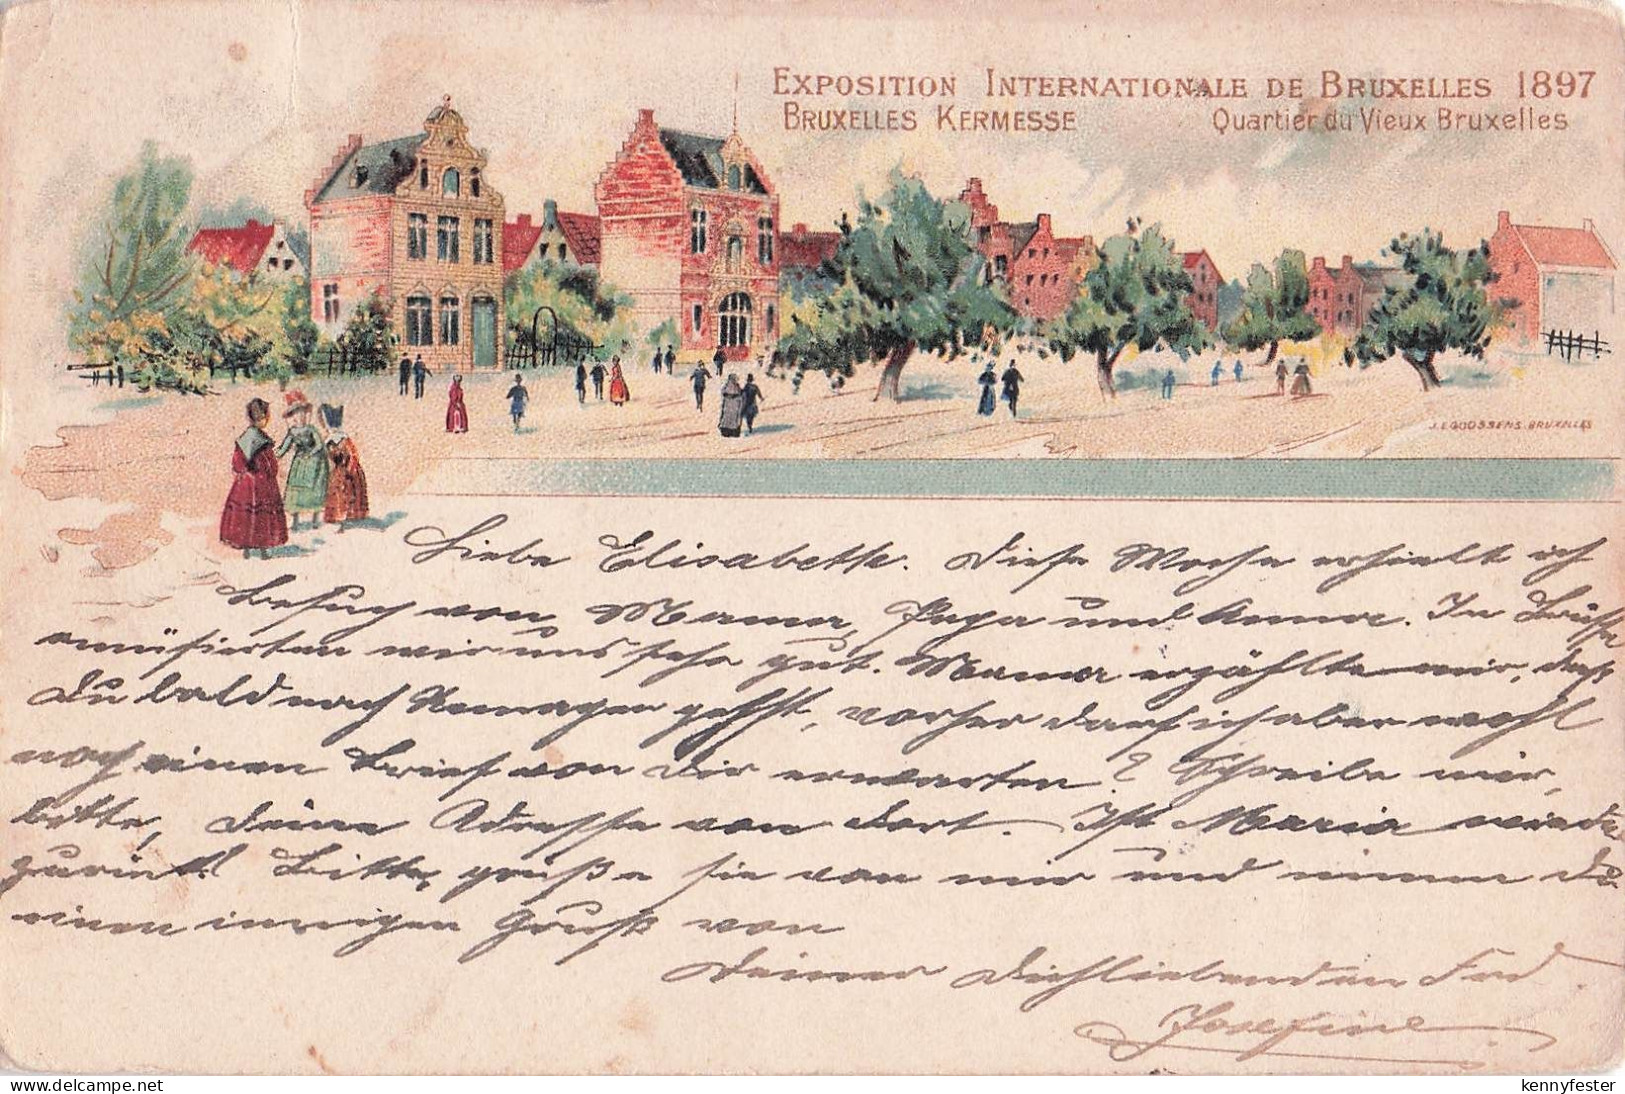 EXPOSITION INTERNATIONALE DE BRUXELLES 1897
BRUXELLES KERMESSE Quartier du Vieux Bruxelles
J.L. GOOSSENS. BRUXELLES
Liebe Elisabeth. Diese Woche erhielt ich
Besuch von Mama, Papa und Anna. In Brüssel
amüsierten wir uns sehr gut. Mama erzählte mir, daß
Du bald nach Remagen gehst, vorher darf ich aber wohl
noch einen Brief von Dir erwarten? Schreibe mir,
bitte, deine Adresse von dort. Ist Maria wieder
zurück? Bitte, grüße sie von mir und nimm Du
einen innigen Gruß von
Deiner Dichliebenden Frd.
Josefine
delcampe.net
kennyfester